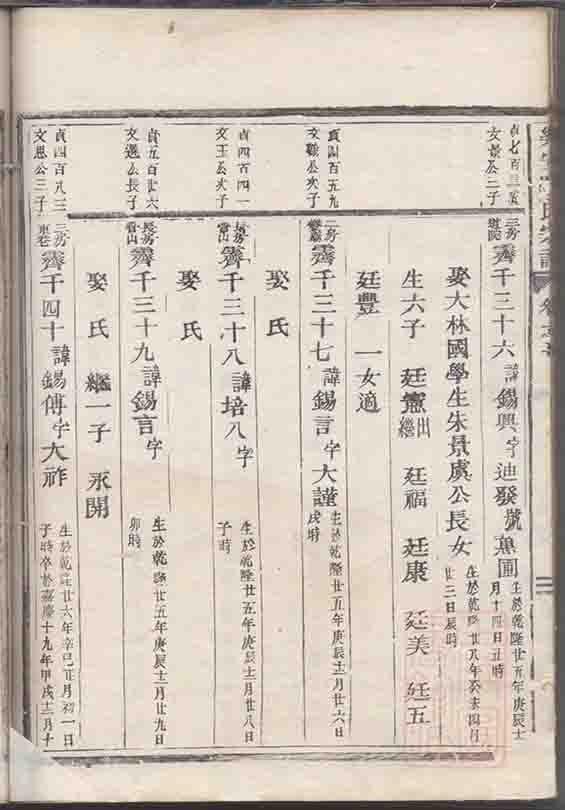 貞七百三
文景公三子
三房
齊千三十六諱錫興字迪發號魚圃
生於乾隆廿五年庚辰十
月十四日丑時
娶大林國學生朱景虞公長女
生於乾隆廿八年癸未四月
廿三日辰時
生六子 廷憲出繼 廷福 廷康 廷美 廷五
廷豐 一女適
貞四百五九
文公次子
二房
齊千三十七諱錫言字大謹
生於乾隆廿五年庚辰十二月廿六日
戌時
娶 氏
貞四百四一
文玉公次子
長房
齊千三十八諱培八字
生於乾隆廿五年庚辰十二月廿八日
子時
娶 氏
貞五百廿六
文選公長子
長房
齊千三十九諱錫言字
生於乾隆廿五年庚辰十二月廿九日
卯時
娶 氏 繼一子 永開
貞四百八三
文恩公三子
三房
齊千四十諱錫傅字大祚
生於乾隆廿六年辛巳正月初一日
子時卒於嘉慶十九年甲戌十二月十